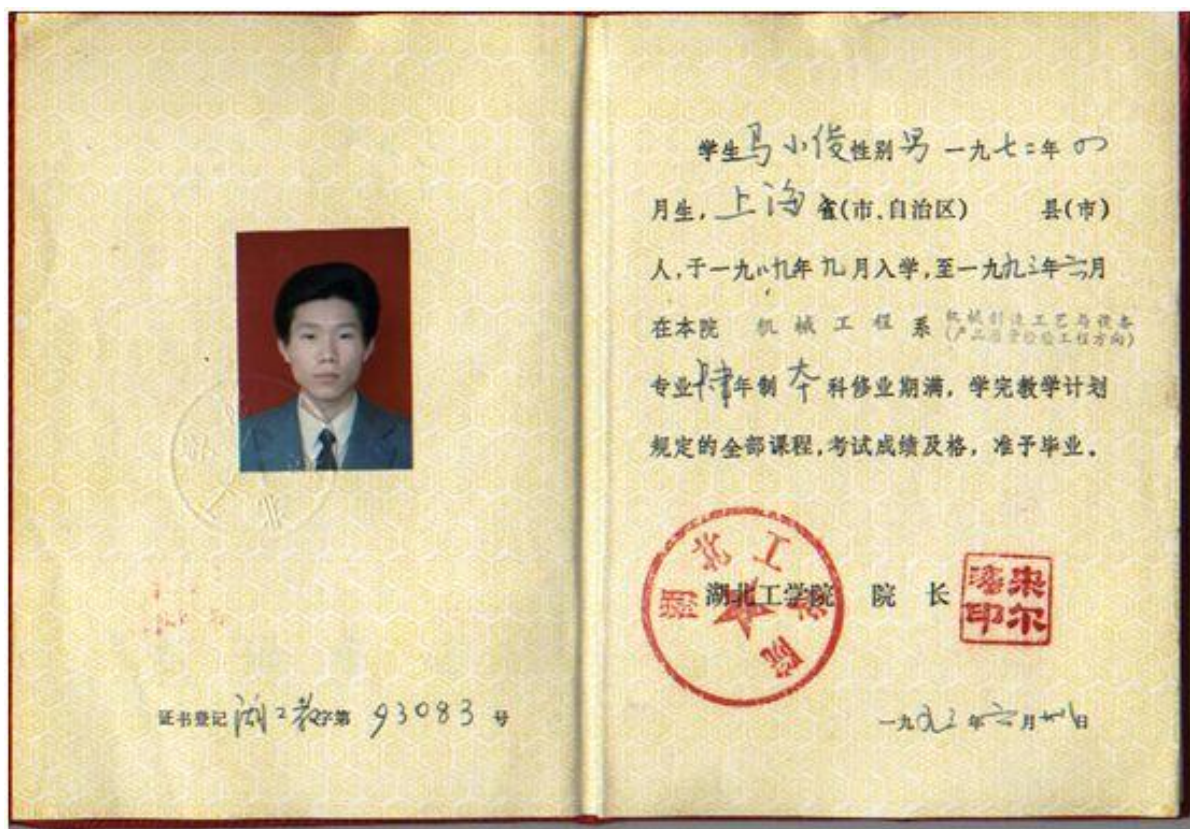 证书登记湖工教字第 93083 号
学生马小俊性别男 一九七二年四
月生,上海省(市、自治区) 县(市)
人,于一九八九年九月入学,至一九九三年六月
在本院 机械工程系 机械制造工艺与设备
(产品质量检验工程方向)
专业肆年制本科修业期满,学完教学计划
规定的全部课程,考试成绩及格,准予毕业。
湖北工学院
湖北工学院 院长
印
一九九三年六月 日